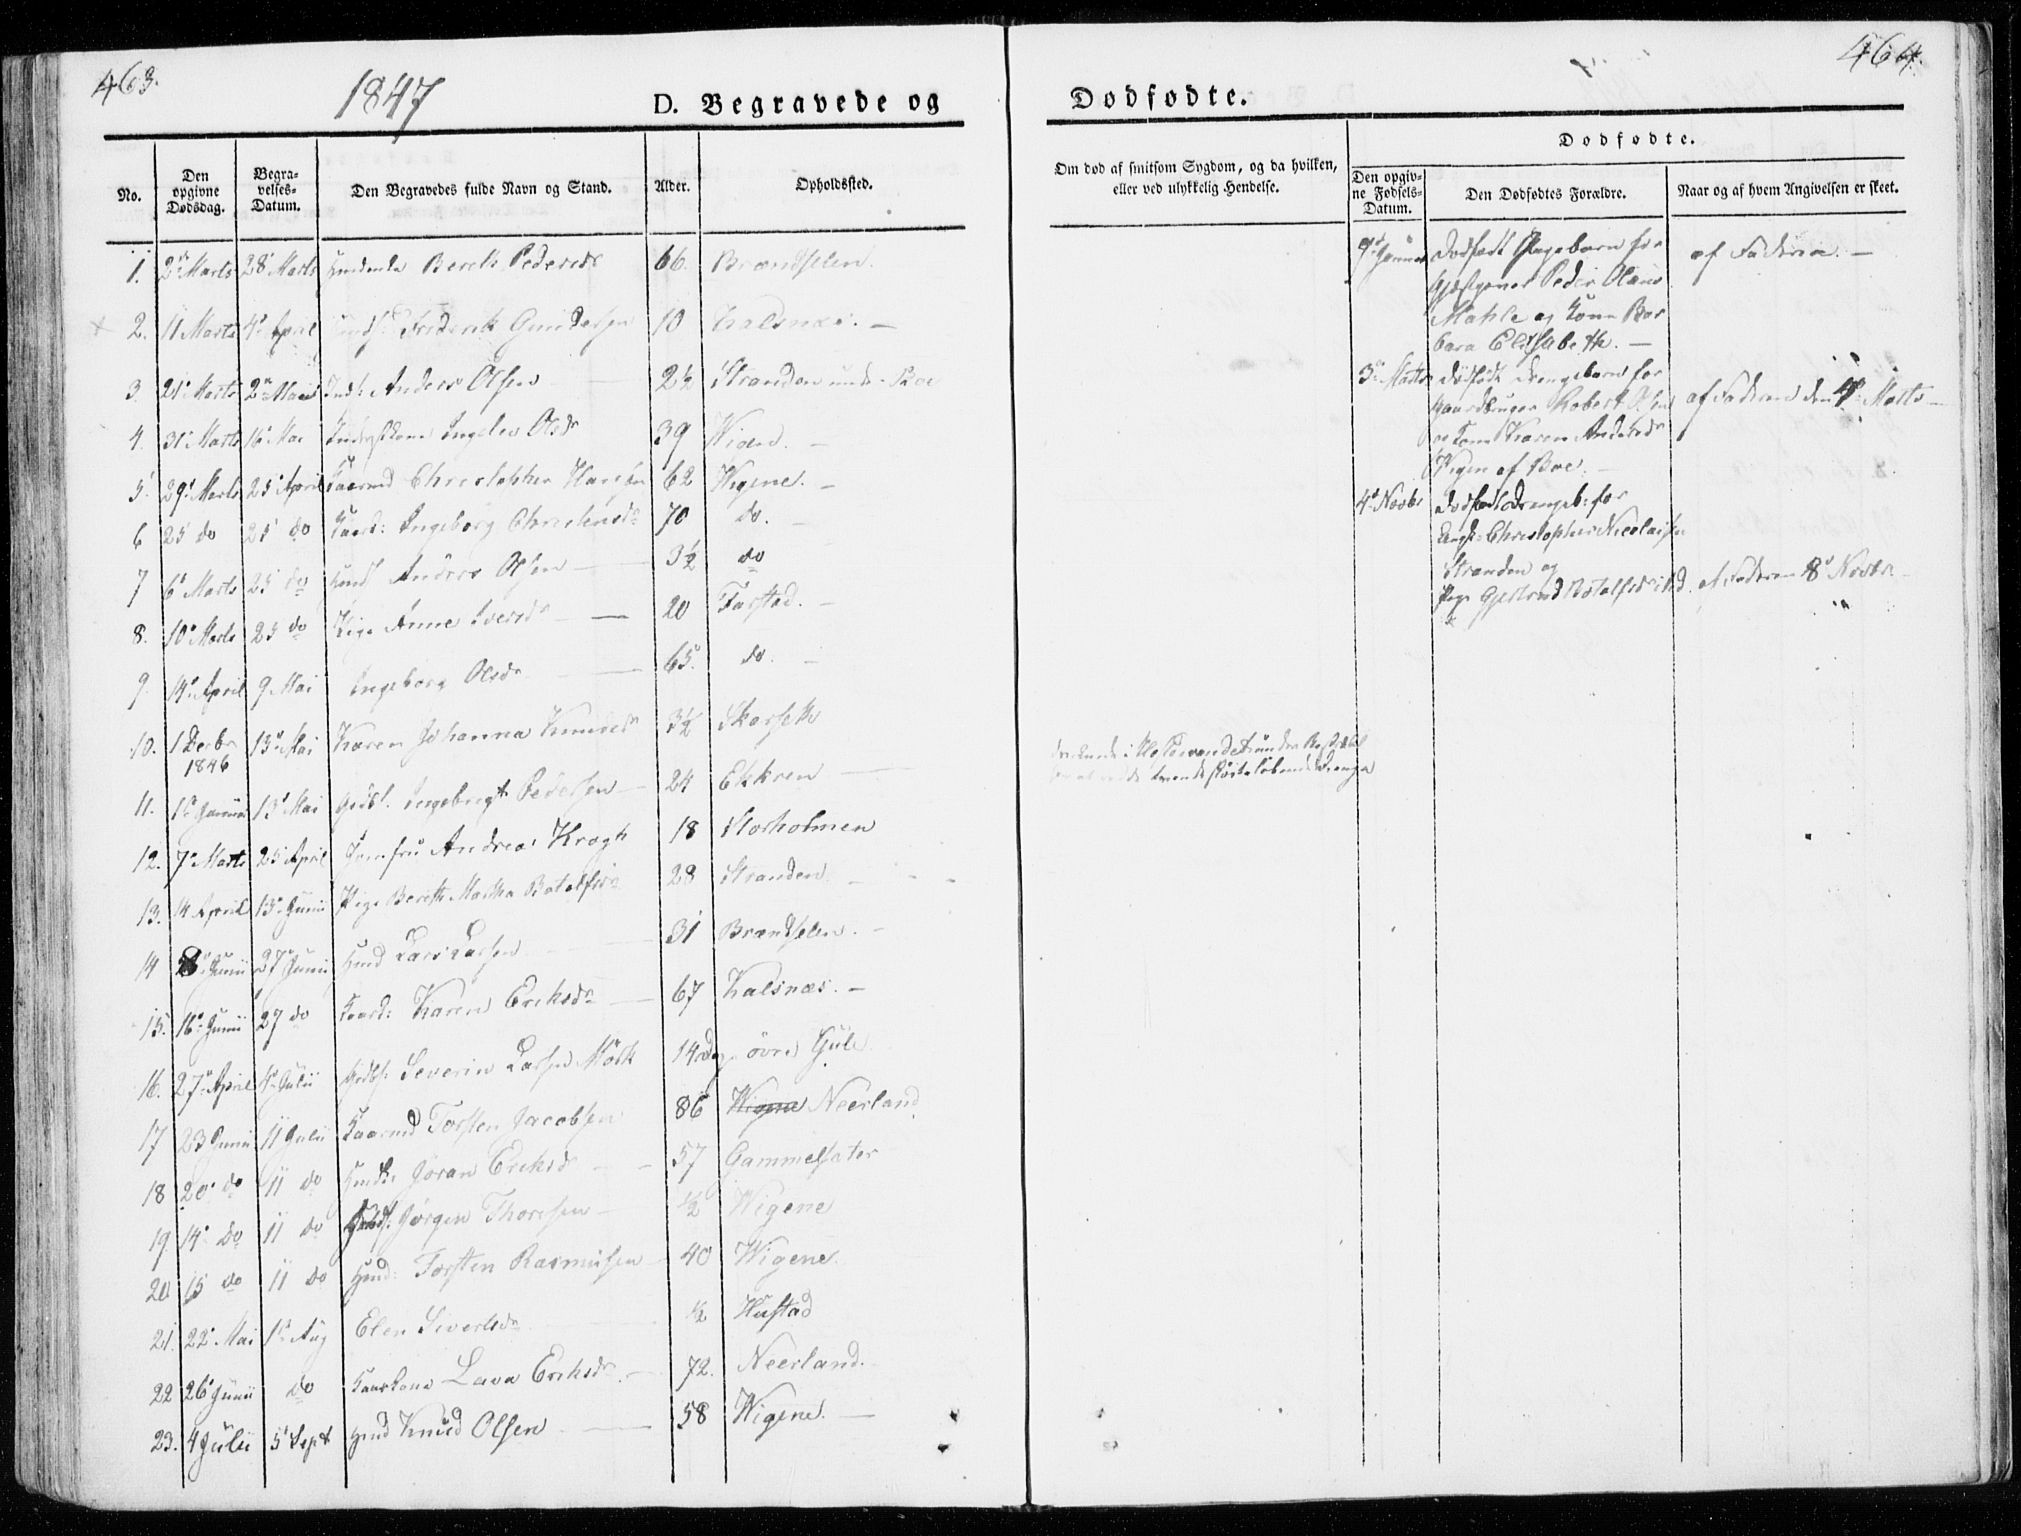 463.
1847
D. Begravede og
No.
Den opgivne Dødsdag.
Begravelses-Datum.
Den Begravedes fulde Navn og Stand.
Alder.
Opholdssted.
1. 2den Marts 28 Marts Bereth Pedersdr 66. Brandselen.
2. 11 Marts 4 April Frederik Gundersen 10 Kalsnæs. —
3. 21 Marts 2den Anders Olsen 2½ Stranden under Boe
4. 31 Marts 16 Mai Ingelev Olsdr 39 —
5. 29 Marts 25 April Kaarmd Christopher Hansen 62 Wigene. —
6 25 do 25 do Ingeborg Christensdr 70 do. —
7 6 Marts 25 do Anders Olsen — 3½ do
8. 10 Marts 25 do Pige Anne Iversdr — 20 Farstad. —
9. 14 April 9 Mai Ingeborg Olsdr — 65. do. —
10. 1 Decbr 1846 13 Mai Karen Johanna Knudsdr 3½ Skarseth
11. 1 Januar 13 Mai Ingebrigt Pedersen — 24 Ekkren —
12. 7 Marts 25 April Jomfru Andrea Krogh 18 Storholmen
13. 14 April 13 Junii Pige Bereth Martha Botolfsdr 28 Stranden. —
14 8 Junii 27 Junii Huusmd Lars Larsen 31 Brandselen. —
15. 16 Junii 27 do Karen Eriksdr — 67 Kalsnæs. —
16. 27 April 4 Julii Severin Larsen Mork 14 Dg øvre Gule
17 23 Junii 11 Julii Kaarmd Torsten Jacobsen 86 Wigene Neerland
18 20 do 11 do Jøran Eriksdr — 57 Gammelsæter
19. 14 do 11 do Jørgen Thoresen — ½ Wigene
20 15 do 11 do Torsten Rasmussen 40 Wigene.
21. 22 Mai 1 Aug Elen Sivertsdr ½ Hustad
22 26 Junii do Kaarkone Lava Eriksdr. — 72. Neerland. —
23. 4 Julii 5 Sept Knud Olsen — 58 Wigene. —
464.
Dødfødte.
Om død af smitsom Sygdom, og da hvilken,
eller ved ulykkelig Hendelse.
Dødfødte.
Den opgivne Fødsels-Datum.
Den Dødfødtes Forældre.
Naar og af hvem Angivelsen er skeet.
9 Januar Dødfødt Pigebarn for af Faderen. —
Gjæstgiver Peder Olaus
Mahle og Kone Bar
bara Elisabeth. —
3 Marts Dødfødt Drengebarn for af Faderen den 4 Marts —
Gaardbruger Robert Olsen
og Kone Karen Andersdr
Vigen af Boe. —
4 Novbr Dødfødt Drengeb: for
Christopher Nicolaisen
Stranden og
Pige Gjertrud Botolfsdr af Faderen 8 Novbr —